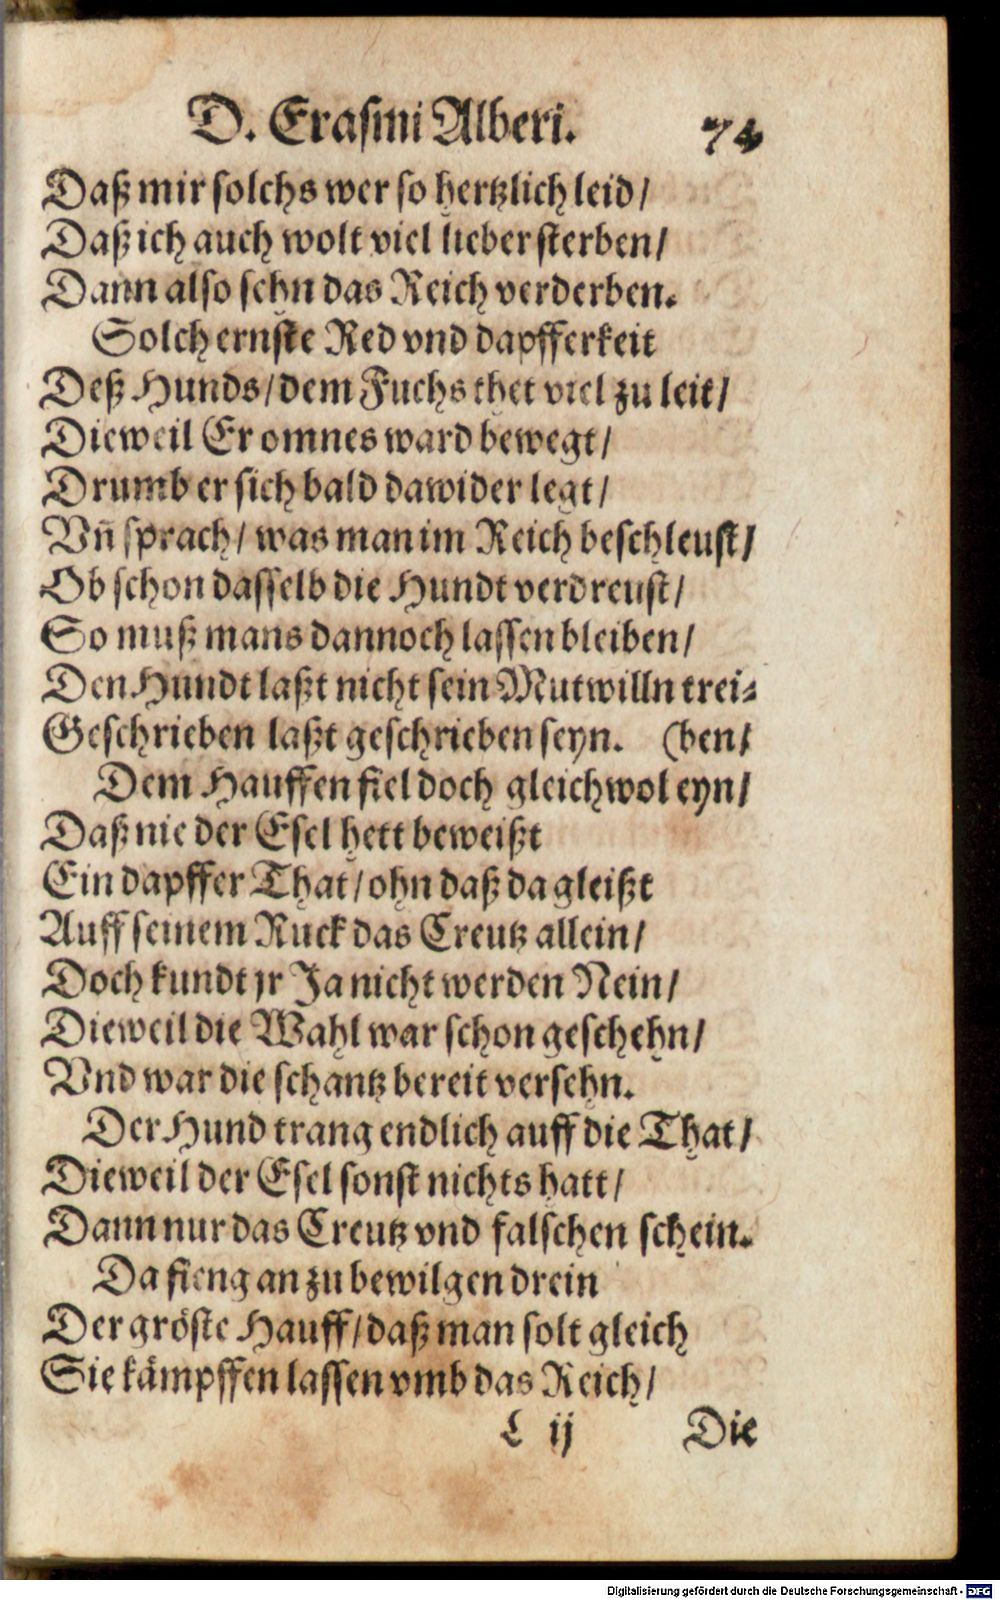 D. Erasmi Alberi. 74
Daß mir solchs wer so hertzlich leid/
Daß ich auch wolt viel lieber sterben/
Dann also sehn das Reich verderben.
Solch ernste Red vnd dapfferkeit
Deß Hunds/ dem Fuchs thet viel zu leit/
Dieweil Er omnes ward bewegt/
Drumb er sich bald dawider legt/
Vn̄ sprach/ was man im Reich beschleust/
Ob schon dasselb die Hundt verdreust/
So muß mans dannoch lassen bleiben/
Den Hundt laßt nicht sein Mutwilln trei-
Geschrieben laßt geschrieben seyn. (ben/
Dem Hauffen fiel doch gleichwol eyn/
Daß nie der Esel hett beweißt
Ein dapffer That/ ohn daß da gleißt
Auff seinem Ruck das Creutz allein/
Doch kundt jr Ja nicht werden Nein/
Dieweil die Wahl war schon geschehn/
Vnd war die schantz bereit versehn.
Der Hund trang endlich auff die That/
Dieweil der Esel sonst nichts hatt/
Dann nur das Creutz vnd falschen schein.
Da fieng an zu bewilgen drein
Der gröste Hauff/ daß man solt gleich
Sie kämpffen lassen vmb das Reich/
L ij Die
Digitalisierung gefördert durch die Deutsche Forschungsgemeinschaft - DFG